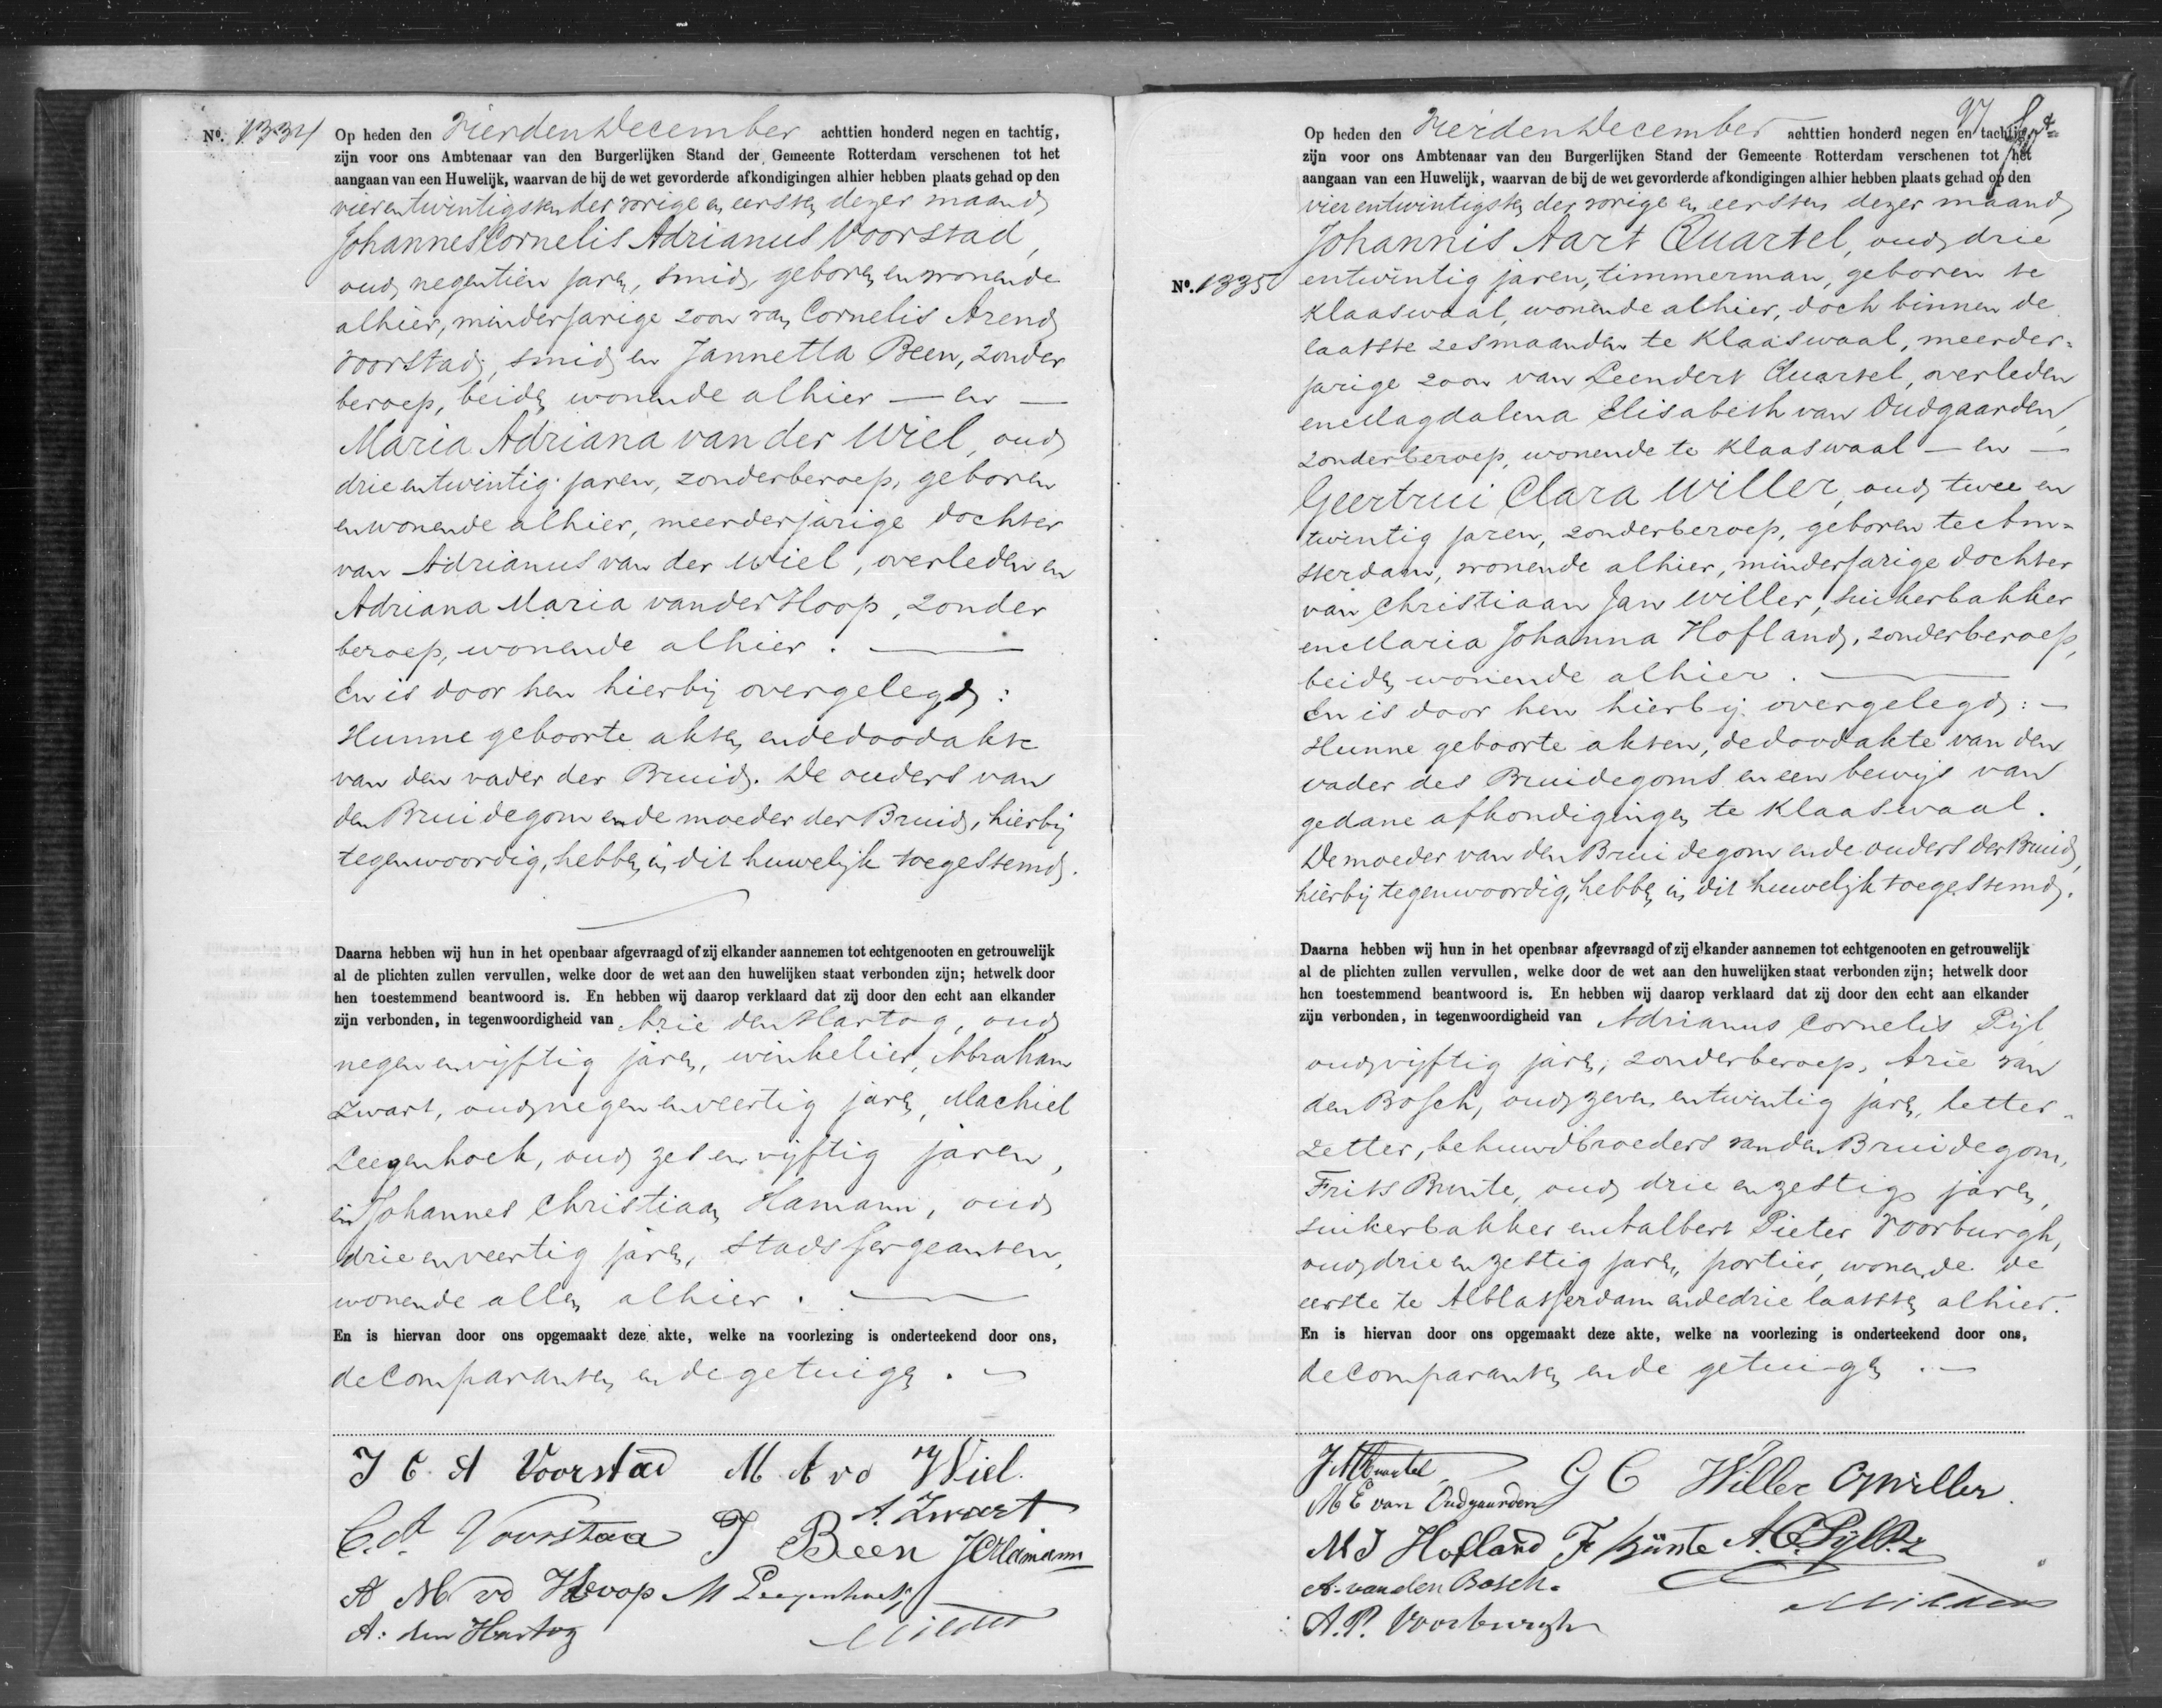 No. 1334 Op heden den Vierden December achttien honderd negen en tachtig,
zijn voor ons Ambtenaar van den Burgerlijken Stand der Gemeente Rotterdam verschenen tot het
aangaan van een Huwelijk, waarvan de bij de wet gevorderde afkondigingen alhier hebben plaats gehad op den
vierentwintigsten der vorige en eersten dezer maand,
Johannes Cornelis Adrianus Voorstad,
oud negentien jaren, smid, geboren en wonende
alhier, minderjarige zoon van Cornelis Arend
Voorstad, smid en Jannetta Been, zonder
beroep, beiden wonende alhier — en —
Maria Adriana van der Wiel, oud
drie entwintig jaren, zonder beroep, geboren
en wonende alhier, meerderjarige dochter
van Adrianus van der Wiel, overleden en
Adriana Maria van der Hoop, zonder
beroep, wonende alhier. —
En is door hen hierbij overgelegd:
Hunne geboorte akten en de doodakte
van den vader der Bruid. De ouders van
den Bruidegom en de moeder der Bruid, hierbij
tegenwoordig, hebben in dit huwelijk toegestemd.
Daarna hebben wij hun in het openbaar afgevraagd of zij elkander aannemen tot echtgenooten en getrouwelijk
al de plichten zullen vervullen, welke door de wet aan den huwelijken staat verbonden zijn; hetwelk door
hen toestemmend beantwoord is. En hebben wij daarop verklaard dat zij door den echt aan elkander
zijn verbonden, in tegenwoordigheid van Arie den Hartog, oud
negen en vijftig jaren, winkelier, Abraham
Zwart, oud negen en veertig jaren, Machiel
Leegenhoek, oud zes en vijftig jaren,
en Johannes Christiaan Hamann, oud
drie en veertig jaren, stads sergeanten,
wonende allen alhier. —
En is hiervan door ons opgemaakt deze akte, welke na voorlezing is onderteekend door ons,
de Comparanten en de getuigen. —
J C A Voorstad M A vd Wiel.
C. A Voorstad J Been A. Zwart JC Hamann
A M vd Hoop M Leegenhoek
A. den Hartog
97
Op heden den Vierden December achttien honderd negen en tachtig,
zijn voor ons Ambtenaar van den Burgerlijken Stand der Gemeente Rotterdam verschenen tot het
aangaan van een Huwelijk, waarvan de bij de wet gevorderde afkondigingen alhier hebben plaats gehad op den
vierentwintigsten der vorige en eersten dezer maand,
Johannis Aart Quartel, oud drie
No. 1335 entwintig jaren, timmerman, geboren te
Klaaswaal, wonende alhier, doch binnen de
laatste zes maanden te Klaaswaal, meerder=
jarige zoon van Leendert Quartel, overleden
en Magdalena Elisabeth van Oudgaarden,
zonder beroep, wonende te Klaaswaal — en —
Geertrui Clara Willer, oud twee en
twintig jaren, zonder beroep, geboren te Am=
sterdam, wonende alhier, minderjarige dochter
van Christiaan Jan Willer, suikerbakker
en Maria Johanna Hofland, zonder beroep,
beiden wonende alhier. —
En is door hen hierbij overgelegd: —
Hunne geboorte akten, de doodakte van den
vader des Bruidegoms en een bewijs van
gedane afkondigingen te Klaaswaal.
De moeder van den Bruidegom en de ouders der Bruid,
hierbij tegenwoordig, hebben in dit huwelijk toegestemd.
Daarna hebben wij hun in het openbaar afgevraagd of zij elkander aannemen tot echtgenooten en getrouwelijk
al de plichten zullen vervullen, welke door de wet aan den huwelijken staat verbonden zijn; hetwelk door
hen toestemmend beantwoord is. En hebben wij daarop verklaard dat zij door den echt aan elkander
zijn verbonden, in tegenwoordigheid van Adrianus Cornelis Pijl
oud vijftig jaren, zonder beroep, Arie van
den Bosch, oud zeven entwintig jaren, letter=
zetter, behuwdbroeders van den Bruidegom,
Frits Bunte, oud drie en zestig jaren,
suikerbakker en Aalbert Pieter Voorburgh,
oud drie en zestig jaren, portier, wonende de
eerste te Alblasserdam en de drie laatsten alhier.
En is hiervan door ons opgemaakt deze akte, welke na voorlezing is onderteekend door ons,
de Comparanten en de getuigen. —
J A Quartel G C Willer CJ Willer
M E van Oudgaarden
M J Hofland F Bünte A. C. Pijl
A. van den Bosch.
A. P. Voorburgh